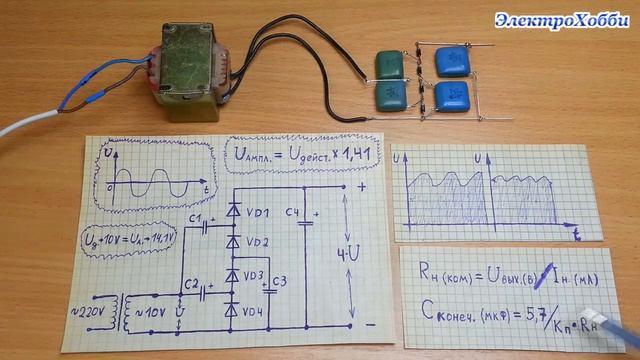 ЭлектроХобби
U
0
t
Uампл. = Uдейст. × 1,41
Uд→10V = Uа→14,1V
C1 +
VD1
VD2
C2 +
VD3
VD4
C3
+
C4
+
+
4·U
−
~220V
~10V
U
U
U
t
Rн (ком) = Uвых.(в) / Iн. (мА)
Cконеч. (мкФ) = 5,7/Кп·Rн